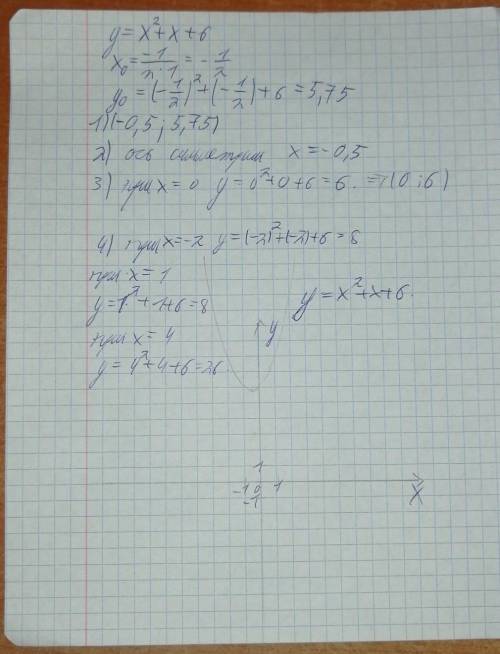 y = x² + x + 6
x₀ = -1/2·1 = -1/2
y₀ = (-1/2)² + (-1/2) + 6 = 5,75
1) (-0,5 ; 5,75)
2) ось симметрии x = -0,5
3) при x = 0 y = 0² + 0 + 6 = 6. => (0 ; 6)
4) при x = -2 y = (-2)² + (-2) + 6 = 8
при x = 1
y = 1² + 1 + 6 = 8
y = x² + x + 6.
при x = 4
y
y = 4² + 4 + 6 = 26
1
-1 0 1
-1
X